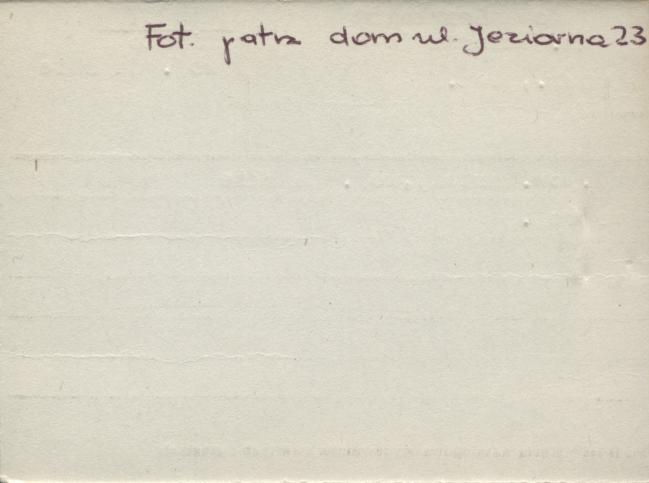 Fot. patrz dom ul. Jeziorna 23